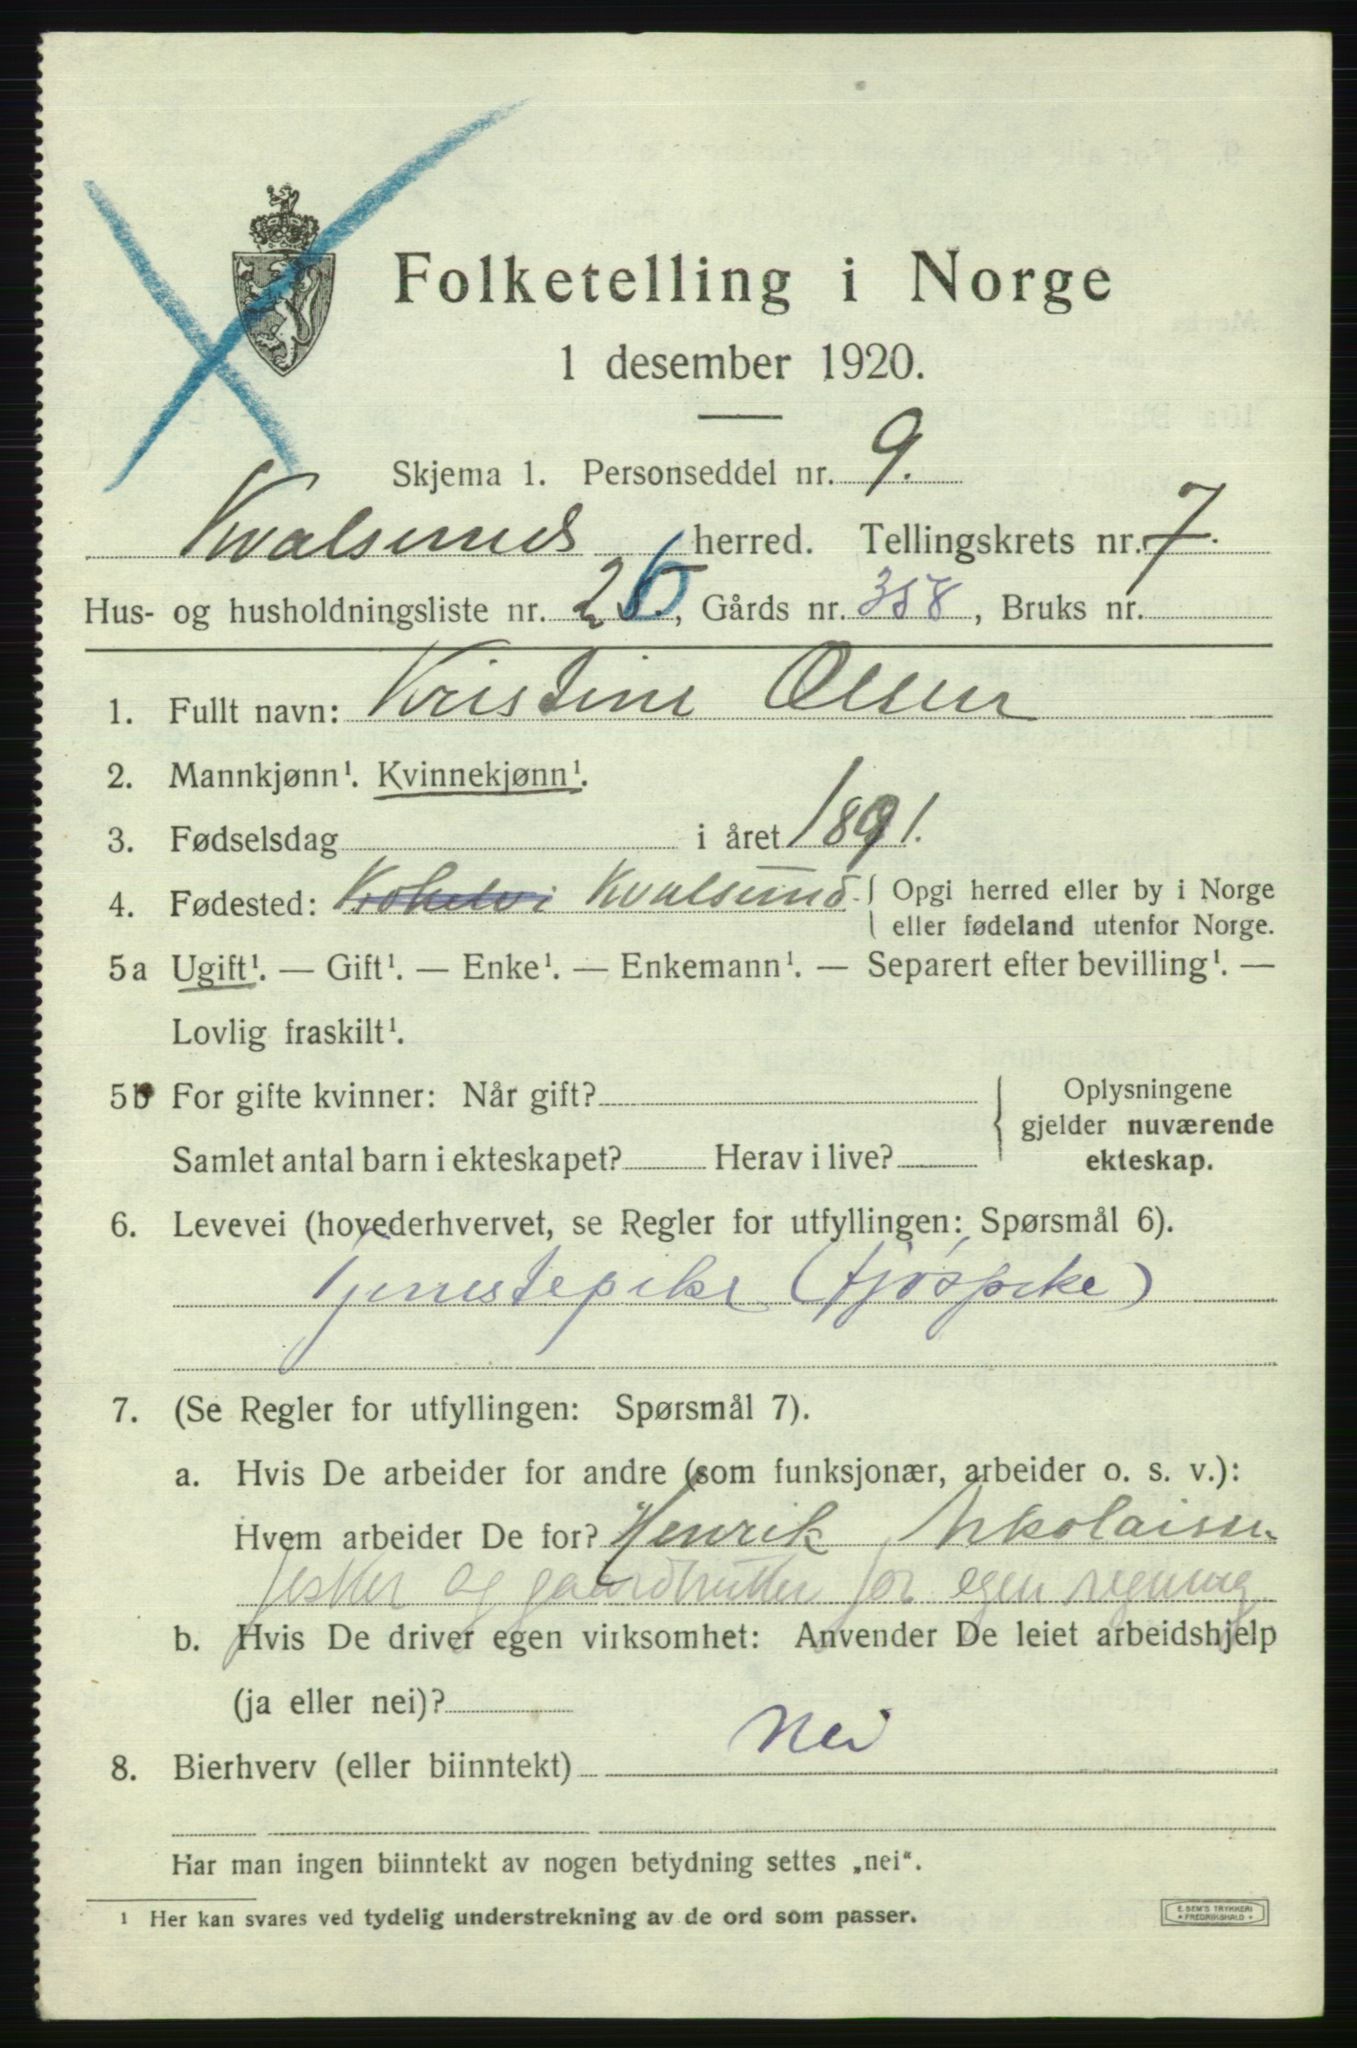 Folketelling i Norge
1 desember 1920.
Skjema 1. Personseddel nr. 9.
Kvalsund herred. Tellingskrets nr. 7.
Hus- og husholdningsliste nr. 26, Gårds nr. 358, Bruks nr.
1. Fullt navn: Kristine Olsen
2. Mannkjønn¹. Kvinnekjønn¹.
3. Fødselsdag i året 1891.
4. Fødested: Kokelvi Kvalsund. Opgi herred eller by i Norge
eller fødeland utenfor Norge.
5a Ugift¹. — Gift¹. — Enke¹. — Enkemann¹. — Separert efter bevilling¹. —
Lovlig fraskilt¹.
5b For gifte kvinner: Når gift? Oplysningene
gjelder nuværende
Samlet antal barn i ekteskapet? Herav i live? ekteskap.
6. Levevei (hovederhvervet, se Regler for utfyllingen: Spørsmål 6).
Tjenestepike (fjøspike)
7. (Se Regler for utfyllingen: Spørsmål 7).
a. Hvis De arbeider for andre (som funksjonær, arbeider o. s. v.):
Hvem arbeider De for? Henrik Nikolaisen
fisker og gaardbruker for egen regning
b. Hvis De driver egen virksomhet: Anvender De leiet arbeidshjelp
(ja eller nei)?
8. Bierhverv (eller biinntekt) Nei
Har man ingen biinntekt av nogen betydning settes „nei".
¹ Her kan svares ved tydelig understrekning av de ord som passer.
E. SEM'S TRYKKERI
FREDRIKSHALD